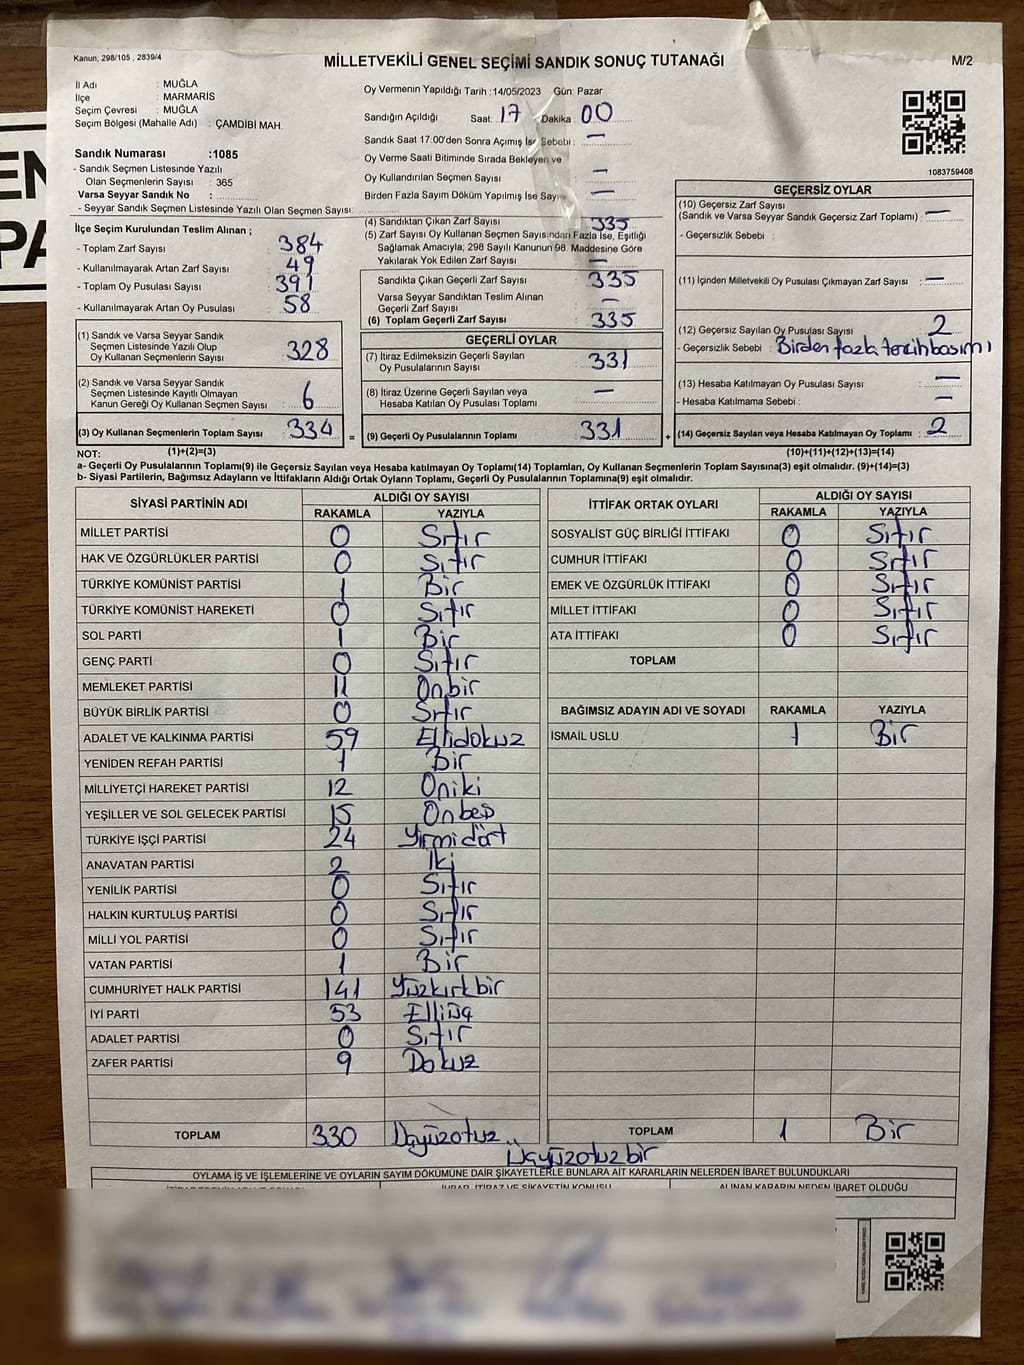 EN
PA
Kanun; 298/105 , 2839/4
MİLLETVEKİLİ GENEL SEÇİMİ SANDIK SONUÇ TUTANAĞI
M/2
İl Adı : MUĞLA
İlçe : MARMARİS
Seçim Çevresi : MUĞLA
Seçim Bölgesi (Mahalle Adı) : ÇAMDİBİ MAH.
Sandık Numarası :1085
- Sandık Seçmen Listesinde Yazılı
Olan Seçmenlerin Sayısı : 365
Varsa Seyyar Sandık No :
- Seyyar Sandık Seçmen Listesinde Yazılı Olan Seçmen Sayısı:
İlçe Seçim Kurulundan Teslim Alınan ;
- Toplam Zarf Sayısı : 384
- Kullanılmayarak Artan Zarf Sayısı : 49
- Toplam Oy Pusulası Sayısı : 391
- Kullanılmayarak Artan Oy Pusulası : 58
(1) Sandık ve Varsa Seyyar Sandık
Seçmen Listesinde Yazılı Olup
Oy Kullanan Seçmenlerin Sayısı : 328
(2) Sandık ve Varsa Seyyar Sandık
Seçmen Listesinde Kayıtlı Olmayan
Kanun Gereği Oy Kullanan Seçmen Sayısı : 6
(3) Oy Kullanan Seçmenlerin Toplam Sayısı : 334
(1)+(2)=(3)
Oy Vermenin Yapıldığı Tarih : 14/05/2023 Gün: Pazar
Sandığın Açıldığı Saat: 17 Dakika 00
Sandık Saat 17:00'den Sonra Açımış İse Sebebi : —
Oy Verme Saati Bitiminde Sırada Bekleyen ve
Oy Kullandırılan Seçmen Sayısı —
Birden Fazla Sayım Döküm Yapılmış İse Sayısı —
(4) Sandıktan Çıkan Zarf Sayısı 335
(5) Zarf Sayısı Oy Kullanan Seçmen Sayısından Fazla İse, Eşitliği
Sağlamak Amacıyla; 298 Sayılı Kanunun 98. Maddesine Göre
Yakılarak Yok Edilen Zarf Sayısı : —
Sandıkta Çıkan Geçerli Zarf Sayısı : 335
Varsa Seyyar Sandıktan Teslim Alınan
Geçerli Zarf Sayısı : —
(6) Toplam Geçerli Zarf Sayısı : 335
GEÇERLİ OYLAR
(7) İtiraz Edilmeksizin Geçerli Sayılan
Oy Pusulalarının Sayısı : 331
(8) İtiraz Üzerine Geçerli Sayılan veya
Hesaba Katılan Oy Pusulası Toplamı : —
= (9) Geçerli Oy Pusulalarının Toplamı : 331 +
1083759408
GEÇERSİZ OYLAR
(10) Geçersiz Zarf Sayısı
(Sandık ve Varsa Seyyar Sandık Geçersiz Zarf Toplamı) : —
- Geçersizlik Sebebi :
(11) İçinden Milletvekili Oy Pusulası Çıkmayan Zarf Sayısı : —
(12) Geçersiz Sayılan Oy Pusulası Sayısı : 2
- Geçersizlik Sebebi : Birden fazla tercih basımı
(13) Hesaba Katılmayan Oy Pusulası Sayısı : —
- Hesaba Katılmama Sebebi : —
(14) Geçersiz Sayılan veya Hesaba Katılmayan Oy Toplamı : 2
(10)+(11)+(12)+(13)=(14)
NOT:
a- Geçerli Oy Pusulalarının Toplamı(9) ile Geçersiz Sayılan veya Hesaba katılmayan Oy Toplamı(14) Toplamları, Oy Kullanan Seçmenlerin Toplam Sayısına(3) eşit olmalıdır. (9)+(14)=(3)
b- Siyasi Partilerin, Bağımsız Adayların ve İttifakların Aldığı Ortak Oyların Toplamı, Geçerli Oy Pusulalarının Toplamına(9) eşit olmalıdır.
SİYASİ PARTİNİN ADI ALDIĞI OY SAYISI
RAKAMLA YAZIYLA
MİLLET PARTİSİ 0 Sıfır
HAK VE ÖZGÜRLÜKLER PARTİSİ 0 Sıfır
TÜRKİYE KOMÜNİST PARTİSİ 1 Bir
TÜRKİYE KOMÜNİST HAREKETİ 0 Sıfır
SOL PARTİ 1 Bir
GENÇ PARTİ 0 Sıfır
MEMLEKET PARTİSİ 11 Onbir
BÜYÜK BİRLİK PARTİSİ 0 Sıfır
ADALET VE KALKINMA PARTİSİ 59 Ellidokuz
YENİDEN REFAH PARTİSİ 1 Bir
MİLLİYETÇİ HAREKET PARTİSİ 12 Oniki
YEŞİLLER VE SOL GELECEK PARTİSİ 15 Onbeş
TÜRKİYE İŞÇİ PARTİSİ 24 Yirmidört
ANAVATAN PARTİSİ 2 İki
YENİLİK PARTİSİ 0 Sıfır
HALKIN KURTULUŞ PARTİSİ 0 Sıfır
MİLLİ YOL PARTİSİ 0 Sıfır
VATAN PARTİSİ 1 Bir
CUMHURİYET HALK PARTİSİ 141 Yüzkırkbir
İYİ PARTİ 53 Elliüç
ADALET PARTİSİ 0 Sıfır
ZAFER PARTİSİ 9 Dokuz
TOPLAM 330 Üçyüzotuz
İTTİFAK ORTAK OYLARI ALDIĞI OY SAYISI
RAKAMLA YAZIYLA
SOSYALİST GÜÇ BİRLİĞİ İTTİFAKI 0 Sıfır
CUMHUR İTTİFAKI 0 Sıfır
EMEK VE ÖZGÜRLÜK İTTİFAKI 0 Sıfır
MİLLET İTTİFAKI 0 Sıfır
ATA İTTİFAKI 0 Sıfır
TOPLAM
BAĞIMSIZ ADAYIN ADI VE SOYADI RAKAMLA YAZIYLA
İSMAİL USLU 1 Bir
TOPLAM 1 Bir
Üçyüzotuzbir
OYLAMA İŞ VE İŞLEMLERİNE VE OYLARIN SAYIM DÖKÜMÜNE DAİR ŞİKAYETLERLE BUNLARA AİT KARARLARIN NELERDEN İBARET BULUNDUKLARI
İHBAR, İTİRAZ VE ŞİKAYETİN KONUSU
ALINAN KARARIN NEDEN İBARET OLDUĞU